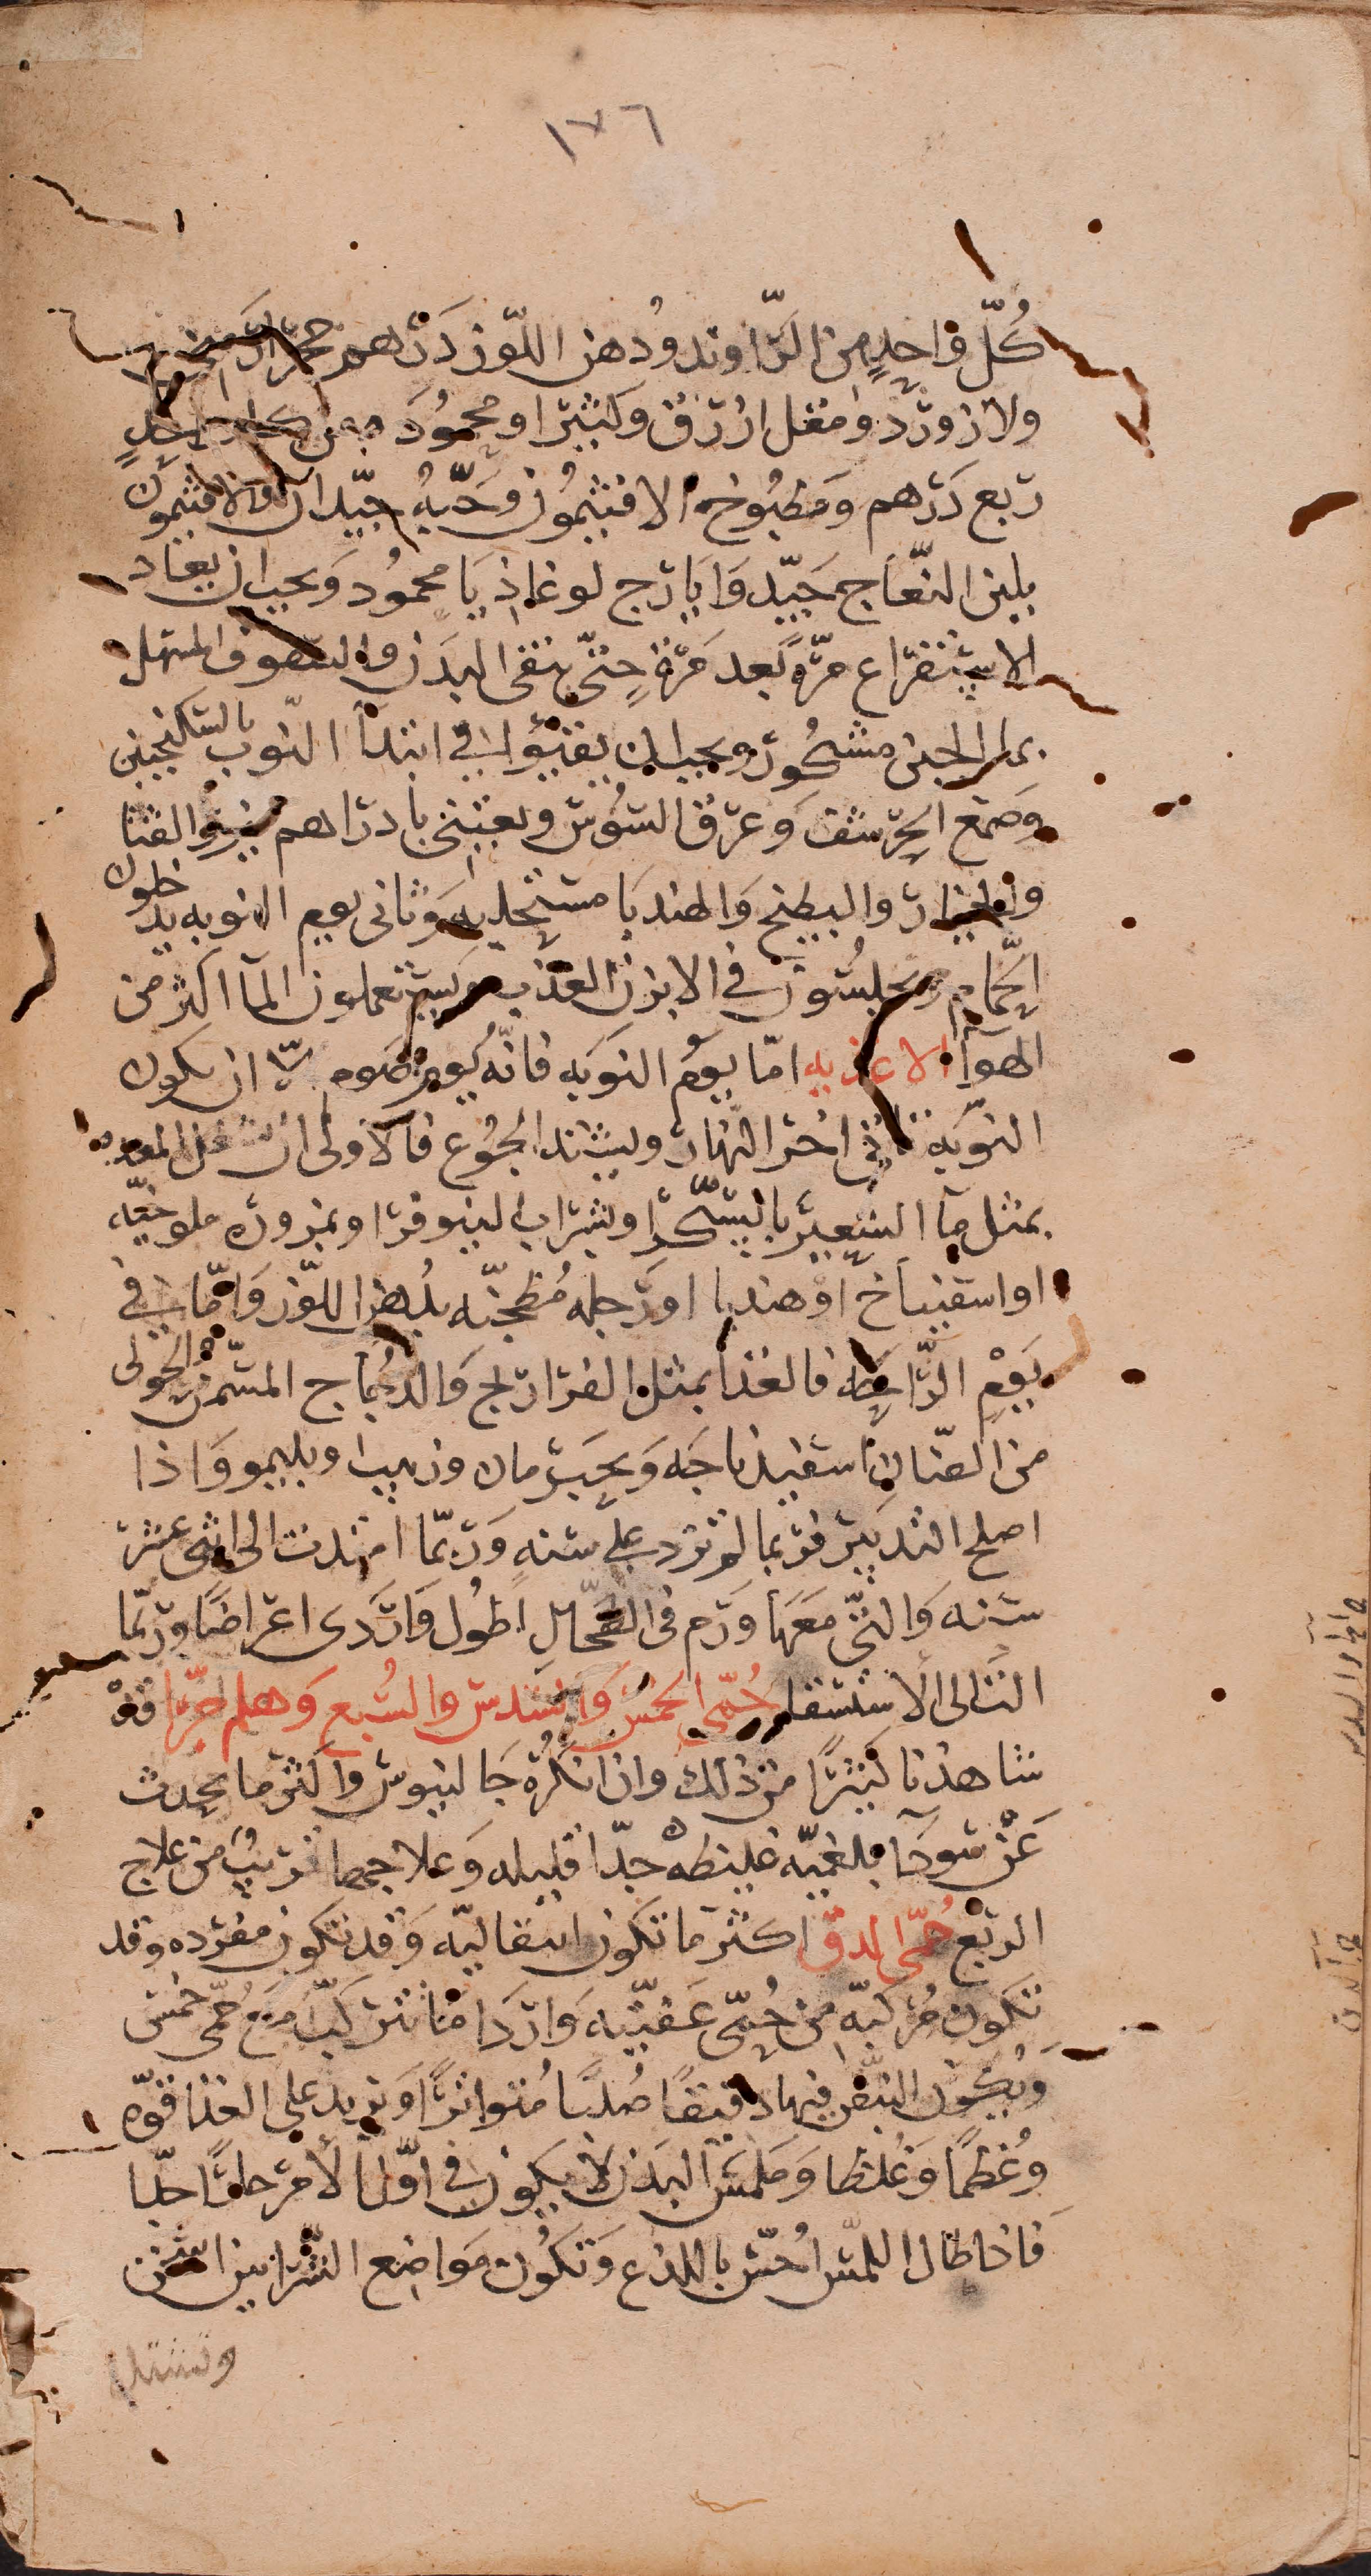 ١٧٦
كُلّ واحدٍ من الرّاوند ودهن اللّوز دَرْهم حجر
ولازوَرْد ومقل ازرق وكثيرا ومحموُدَه من كل واحدٍ
ربع دَرْهم ومَطبُوخ الافتيمُون وَحَبّهُ جيّدان والافتيمُون
بلبن النّعاج جَيّد وَايَارج لوغاذيَا محموُد وَيجب ان يعاد
الاستفراغ مرّةً بعد مَرّة حتّى ينقى البدَن والسّفوف المسهل
بماء الجبن مشكُور ويجب ان يقيّؤا في ابتدآ النّوب بالسكنجبين
وصَمغ الحَرشف وَعرق السّوُس ويعتني بادرارهم ببزر القثا
والخيار والبطيخ وَالهندبَا مستحلبه وَثاني يوم النوبه يدخلون
الحَمّام ويجلسُون في الابزن العَذب ويستعملون المآ اكثر من
الهوآ الاغذيه امّا يوم النَوبَه فانّه يوم صَوم الّا ان يكون
النّوبَه تاتي اخر النّهار ويشتد الجُوع فالاولى ان تشغل المعده
بمثل مآ الشّعير بالسّكّر او بشراب لينوفر او بمزورة ملوخيّه
او اسفيناخ او هندبا او رَجله مُطجّنه بدُهن اللّوز وَامّا في
يَوم الرّاحَه فالغذا بمثل الفرارِيج وَالدجُاج المسَمّن والحولى
من الضّان اسفيذباجَه وَبحَبّ رمان وزبيب وبليمو وَاذا
اصلح التدبير فربما لم تزد على سَنه وَربّما امتدت الى اثنى عشرَ
سَنه وَالتي معَهَا وَرَم في الطّحال اطوُل وَاردَى اعراضًا وربّما
التالى الاستسقا حُمّى الخمُسْ وَالسُدس والسُبع وَهلم جرّا قد
شاهدنا كَثيرًا من ذلك وان انكرَهُ جَالينوس واكثر ما يحدث
عَنْ سَودَآ بلغميّه غليظه جدّا قليله وَعلاجهَا قرَيبٌ من علاج
الربْع حُمّى الدق اكثر ما تكون انتقاليّه وَقد تكون مفرده وقد
تكون مُركبّه من حُمّى عَفنيّه وَارْدَا مَا تتركبّ مَع حُمّى خمس
وَيكوُن النبض فيها دقيقًا صُلبًا مُتواترًا وَيزيد على الغذا قوّه
وعُظمًا وَغُلظا وَملمَس البَدَن لا يكون في اوّل الأمر حارًا جدًا
فاذا طال اللّمس احُسّ باللذع وَتكُون مَواضع الشّرايين اسخن
وتشتد